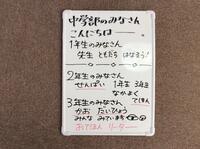 中学部のみなさん
こんにちは
1年生のみなさん
先生 ともだち はなそう!
2年生のみなさん
せんぱい 1年生 3年生
なかよく
てほん
3年生のみなさん
かお だいひょう
みんな みています
おてほん リーダー